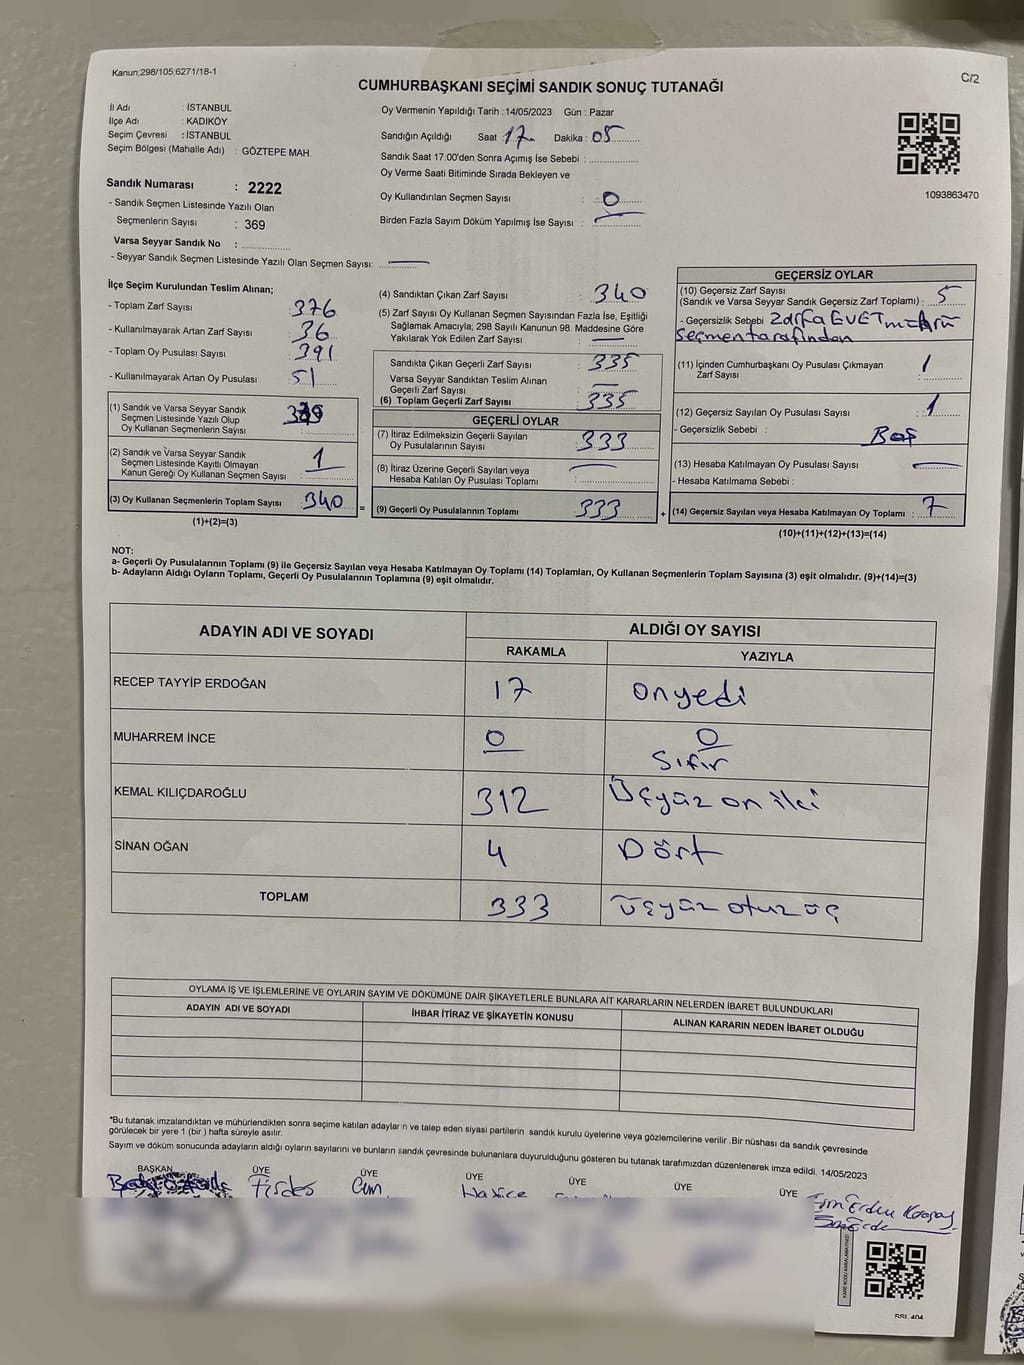 Kanun:298/105:6271/18-1
C/2
CUMHURBAŞKANI SEÇİMİ SANDIK SONUÇ TUTANAĞI
İl Adı : İSTANBUL
İlçe Adı : KADIKÖY
Seçim Çevresi : İSTANBUL
Seçim Bölgesi (Mahalle Adı) : GÖZTEPE MAH.
Sandık Numarası : 2222
- Sandık Seçmen Listesinde Yazılı Olan
Seçmenlerin Sayısı : 369
Varsa Seyyar Sandık No :
- Seyyar Sandık Seçmen Listesinde Yazılı Olan Seçmen Sayısı: —
Oy Vermenin Yapıldığı Tarih :14/05/2023 Gün : Pazar
Sandığın Açıldığı Saat 17 Dakika : 05
Sandık Saat 17:00'den Sonra Açımış İse Sebebi :
Oy Verme Saati Bitiminde Sırada Bekleyen ve
Oy Kullandırılan Seçmen Sayısı : 0
Birden Fazla Sayım Döküm Yapılmış İse Sayısı : —
1093863470
İlçe Seçim Kurulundan Teslim Alınan;
- Toplam Zarf Sayısı : 376
- Kullanılmayarak Artan Zarf Sayısı : 36
- Toplam Oy Pusulası Sayısı : 391
- Kullanılmayarak Artan Oy Pusulası : 51
(1) Sandık ve Varsa Seyyar Sandık
Seçmen Listesinde Yazılı Olup
Oy Kullanan Seçmenlerin Sayısı :
(2) Sandık ve Varsa Seyyar Sandık
Seçmen Listesinde Kayıtlı Olmayan
Kanun Gereği Oy Kullanan Seçmen Sayısı : 1
(3) Oy Kullanan Seçmenlerin Toplam Sayısı : 340 =
(1)+(2)=(3)
(4) Sandıktan Çıkan Zarf Sayısı : 340
(5) Zarf Sayısı Oy Kullanan Seçmen Sayısından Fazla İse, Eşitliği
Sağlamak Amacıyla; 298 Sayılı Kanunun 98. Maddesine Göre
Yakılarak Yok Edilen Zarf Sayısı : —
Sandıkta Çıkan Geçerli Zarf Sayısı : 335
Varsa Seyyar Sandıktan Teslim Alınan
Geçerli Zarf Sayısı : —
(6) Toplam Geçerli Zarf Sayısı : 335
GEÇERLİ OYLAR
(7) İtiraz Edilmeksizin Geçerli Sayılan
Oy Pusulalarının Sayısı : 333
(8) İtiraz Üzerine Geçerli Sayılan veya
Hesaba Katılan Oy Pusulası Toplamı : —
(9) Geçerli Oy Pusulalarının Toplamı : 333 +
GEÇERSİZ OYLAR
(10) Geçersiz Zarf Sayısı
(Sandık ve Varsa Seyyar Sandık Geçersiz Zarf Toplamı) : 5
- Geçersizlik Sebebi 2 defa EVET mührü
seçmen tarafından
(11) İçinden Cumhurbaşkanı Oy Pusulası Çıkmayan
Zarf Sayısı : 1
(12) Geçersiz Sayılan Oy Pusulası Sayısı : 1
- Geçersizlik Sebebi : Boş
(13) Hesaba Katılmayan Oy Pusulası Sayısı : —
- Hesaba Katılmama Sebebi :
(14) Geçersiz Sayılan veya Hesaba Katılmayan Oy Toplamı : 7
(10)+(11)+(12)+(13)=(14)
NOT:
a- Geçerli Oy Pusulalarının Toplamı (9) ile Geçersiz Sayılan veya Hesaba Katılmayan Oy Toplamı (14) Toplamları, Oy Kullanan Seçmenlerin Toplam Sayısına (3) eşit olmalıdır. (9)+(14)=(3)
b- Adayların Aldığı Oyların Toplamı, Geçerli Oy Pusulalarının Toplamına (9) eşit olmalıdır.
ADAYIN ADI VE SOYADI
ALDIĞI OY SAYISI
RAKAMLA YAZIYLA
RECEP TAYYİP ERDOĞAN 17 onyedi
MUHARREM İNCE 0 0
Sıfır
KEMAL KILIÇDAROĞLU 312 Üçyüz on iki
SİNAN OĞAN 4 Dört
TOPLAM 333 üçyüz otuz üç
OYLAMA İŞ VE İŞLEMLERİNE VE OYLARIN SAYIM VE DÖKÜMÜNE DAİR ŞİKAYETLERLE BUNLARA AİT KARARLARIN NELERDEN İBARET BULUNDUKLARI
ADAYIN ADI VE SOYADI İHBAR İTİRAZ VE ŞİKAYETİN KONUSU ALINAN KARARIN NEDEN İBARET OLDUĞU
*Bu tutanak imzalandıktan ve mühürlendikten sonra seçime katılan adaylar ve talep eden siyasi partilerin sandık kurulu üyelerine veya gözlemcilerine verilir .Bir nüshası da sandık çevresinde
görülecek bir yere 1 (bir ) hafta süreyle asılır.
Sayım ve döküm sonucunda adayların aldığı oyların sayılarını ve bunların sandık çevresinde bulunanlara duyurulduğunu gösteren bu tutanak tarafımızdan düzenlenerek imza edildi. 14/05/2023
BAŞKAN ÜYE ÜYE ÜYE ÜYE ÜYE ÜYE
Firdes Cem Hatice